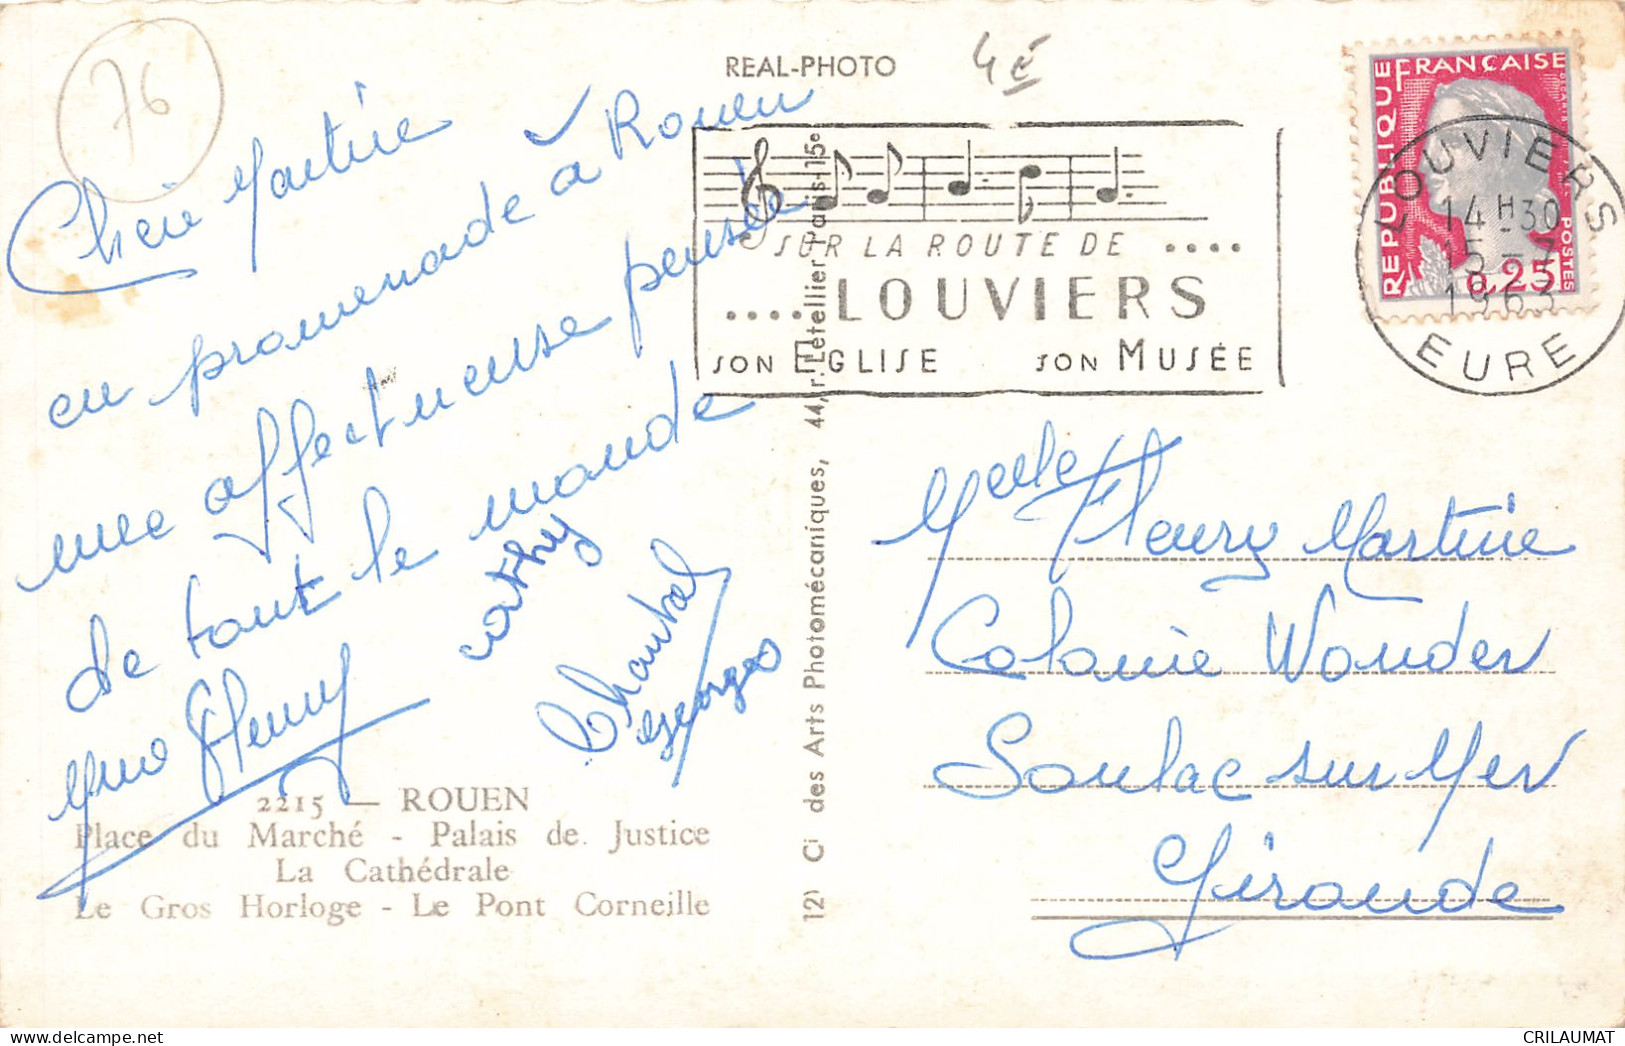 76
REAL-PHOTO
4 €
Cherie Martine
en promenade à Rouen
une affectueuse pensée
de tout le monde
Mme Fleury
cathy
Chantal
georges
2215 — ROUEN
Place du Marché - Palais de Justice
La Cathédrale
Le Gros Horloge - Le Pont Corneille
Cie des Arts Photomécaniques, 44, r. Letellier Paris-15e
SUR LA ROUTE DE ....
.... LOUVIERS
SON EGLISE SON MUSÉE
RÉPUBLIQUE FRANÇAISE
POSTES
0,25
LOUVIERS
14 H 30
15 - 7
1963
EURE
Melle Fleury Martine
Colonie Wonder
Soulac sur Mer
Gironde
CRILAUMAT